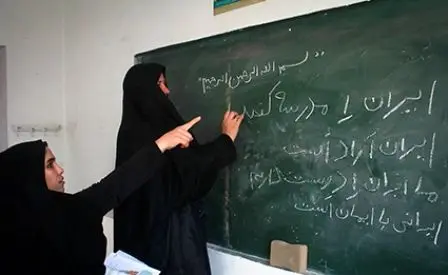 "بسم الله الرحمن الرحیم"
ایران را مدرسه
ایران آزاد است
ما ایران را دوست داریم
ایرانی با ایمان است